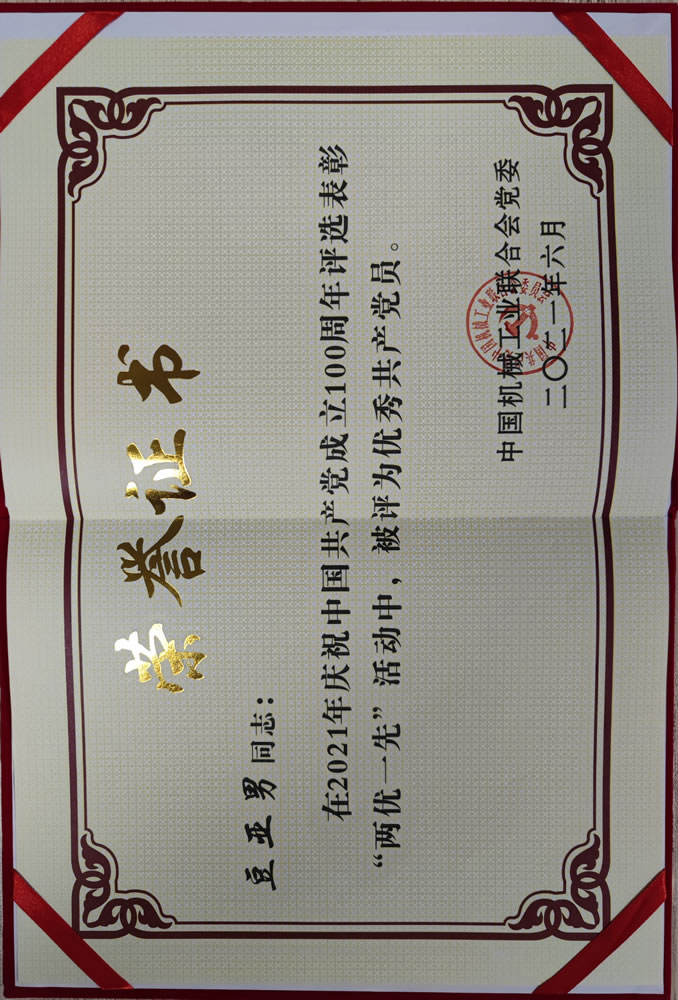 荣誉证书
豆亚男同志：
在2021年庆祝中国共产党成立100周年评选表彰
“两优一先”活动中，被评为优秀共产党员。
中国机械工业联合会党委
二〇二一年六月